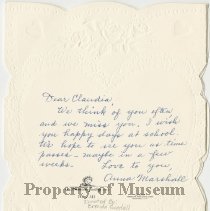 Dear Claudia,
We think of you often
and we miss you. I wish
you happy days at school.
We hope to see you as time
passes - maybe in a few
weeks. Love to you,
Anna Marshall
Property of Museum
Donated By